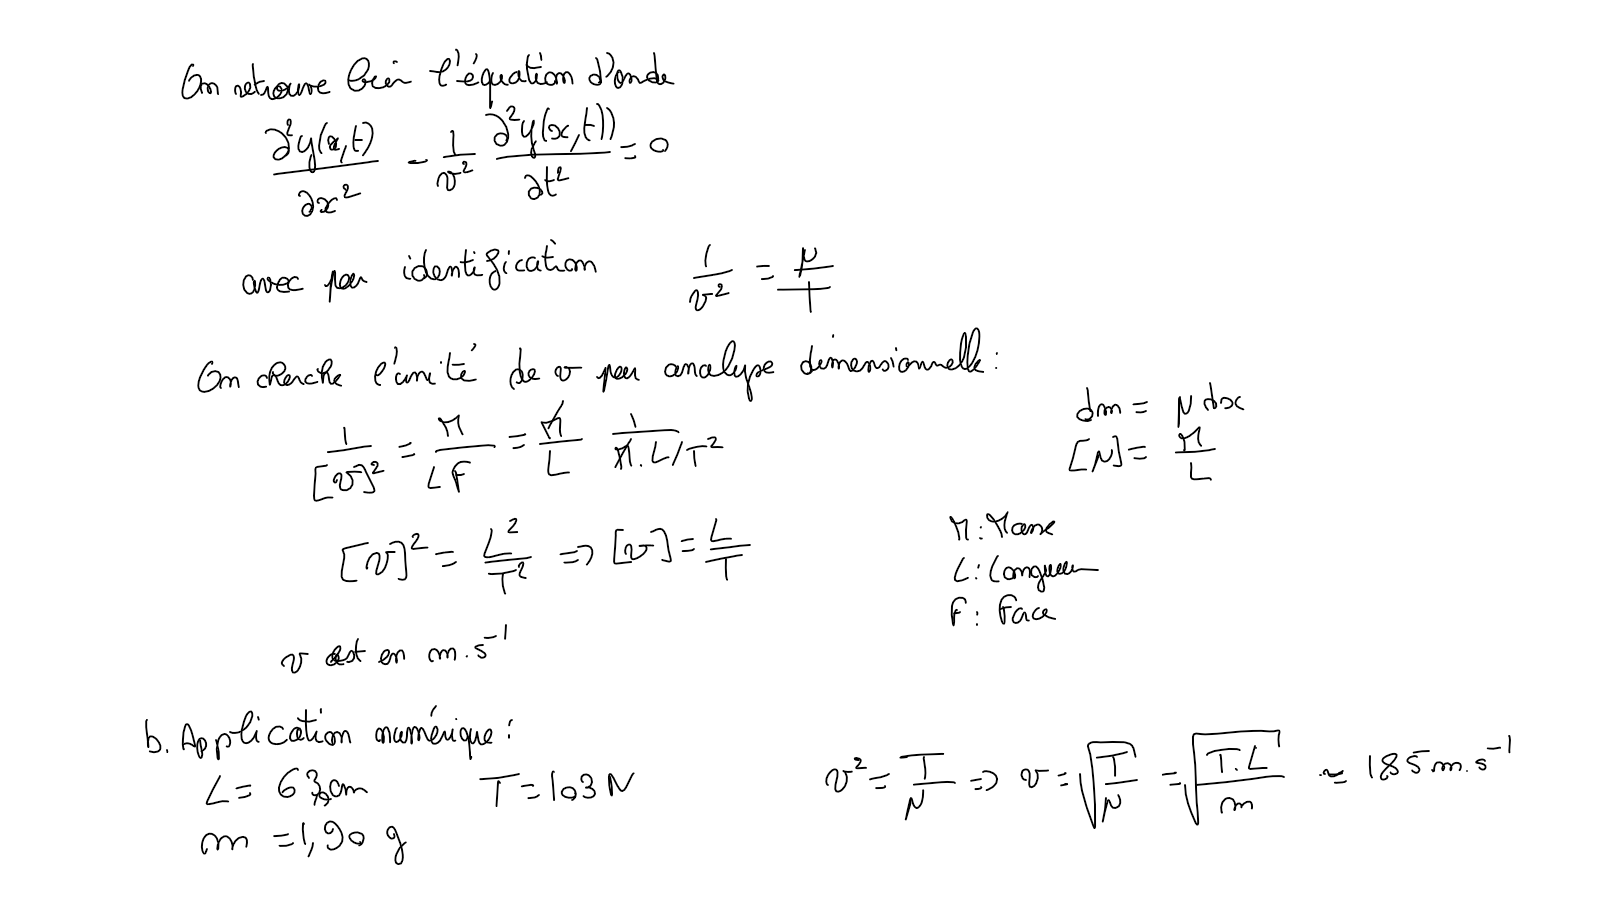 On retrouve bien l'équation d'onde
∂²y(x,t)/∂x² - 1/v² ∂²y(x,t))/∂t² = 0
avec par identification 1/v² = μ/T
On cherche l'unité de v par analyse dimensionnelle :
dm = μ dx
1/[v]² = M/(L F) = M/L 1/(M.L/T²)
[μ] = M/L
[v]² = L²/T² => [v] = L/T
M : Masse
L : Longueur
F : Force
v est en m.s⁻¹
b. Application numérique :
L = 63,0cm T = 103 N
v² = T/μ => v = √(T/μ) = √(T.L/m) ≃ 185 m.s⁻¹
m = 1,90 g